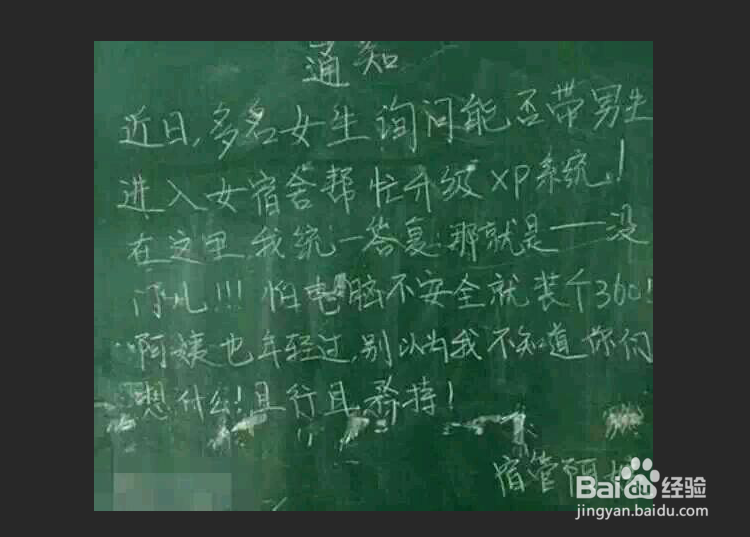 通知
近日,多名女生询问能否带男生
进入女宿舍帮忙升级XP系统!
在这里,我统一答复:那就是——没
门儿!!!怕电脑不安全就装个360!
阿姨也年轻过,别以为我不知道你们
想什么!且行且矜持!
宿管阿姨
Baidu经验
jingyan.baidu.com